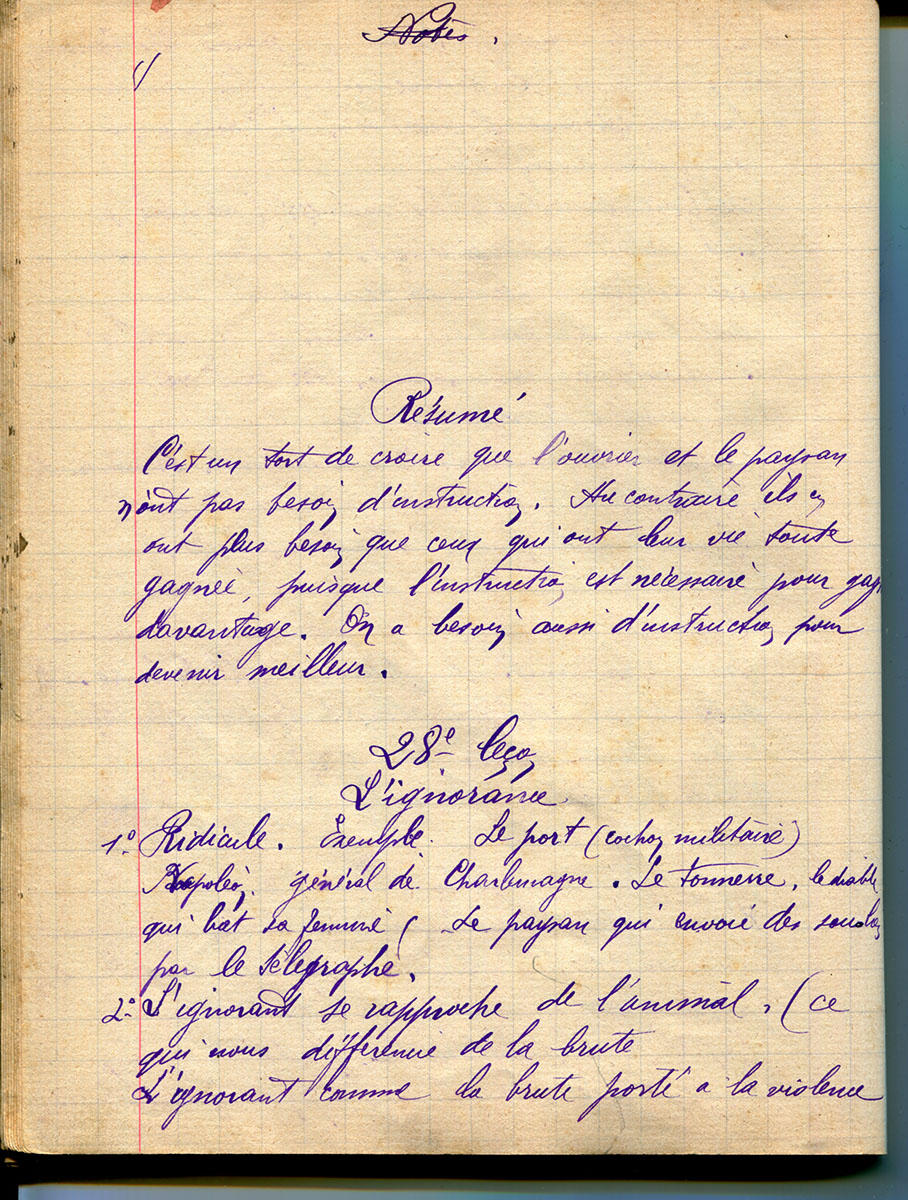 Notes.
Résumé
C'est un tort de croire que l'ouvrier et le paysan
n'ont pas besoin d'instruction. Au contraire ils en
ont plus besoin que ceux qui ont leur vie toute
gagnée, puisque l'instruction est nécessaire pour gag
davantage. On a besoin aussi d'instruction pour
devenir meilleur.
28e leçon
L'ignorance
1º Ridicule. Exemple. Le port (cochon militaire)
Napoléon général de Charlemagne. Le tonnerre, le diable
qui bat sa femme ( Le paysan qui envoie des
par le télégraphe.
2º L'ignorant se rapproche de l'animal. (ce
qui nous différencie de la brute
L'ignorant comme la brute porté a la violence